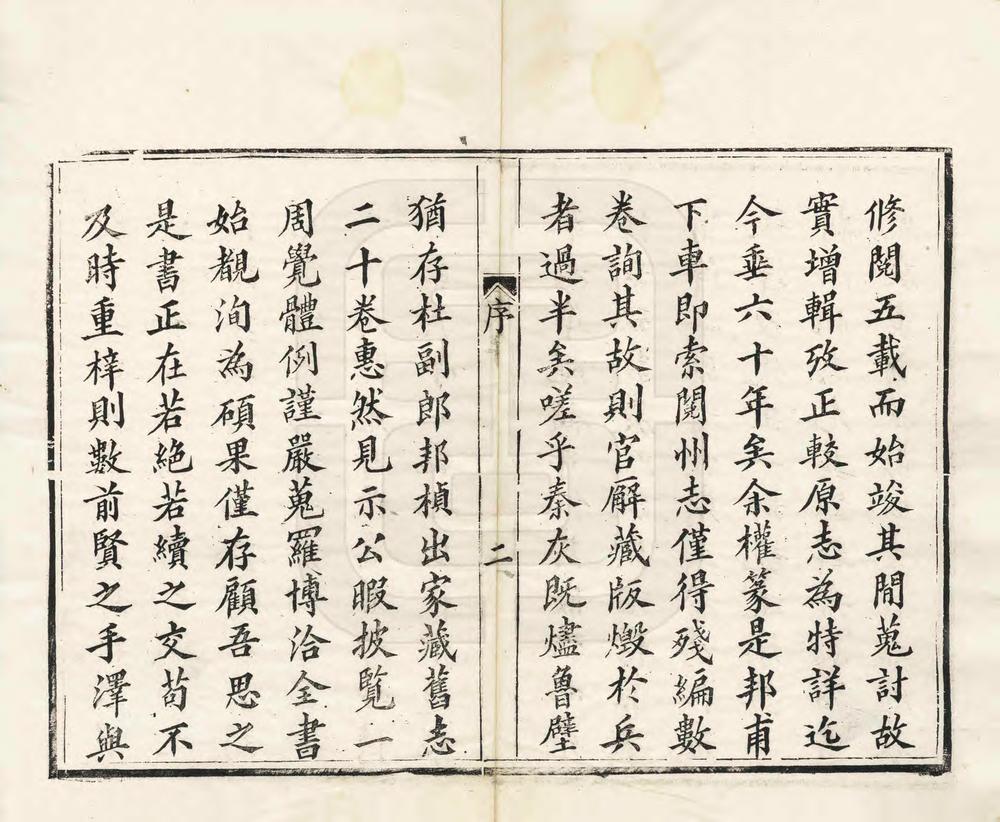 修閱五載而始竣其間蒐討故
實增輯攷正較原志為特詳迄
今垂六十年矣余權篆是邦甫
下車即索閱州志僅得殘編數
卷詢其故則官廨藏版燬於兵
者過半矣嗟乎秦灰既燼魯壁
序 二
猶存杜副郎邦楨出家藏舊志
二十卷惠然見示公暇披覽一
周覺體例謹嚴蒐羅博洽全書
始覩洵為碩果僅存顧吾思之
是書正在若絶若續之交苟不
及時重梓則數前賢之手澤與